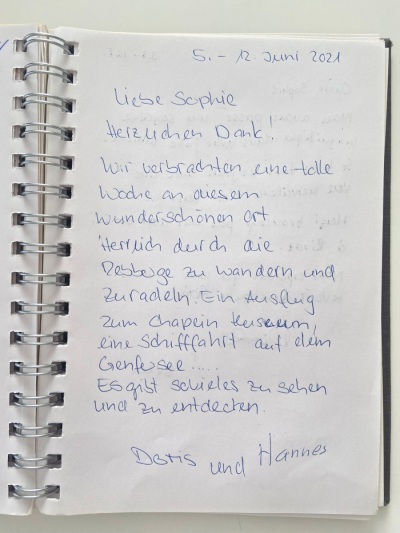 5. - 12 Juni 2021
Liebe Sophie
Herzlichen Dank!
Wir verbrachten eine tolle
Woche an diesem
wunderschönen Ort
Herrlich durch die
Rebberge zu wandern und
zu radeln. Ein Ausflug
zum Chaplin Museum,
eine Schifffahrt auf dem
Genfersee.....
Es gibt so vieles zu sehen
und zu entdecken.
Doris und Hannes